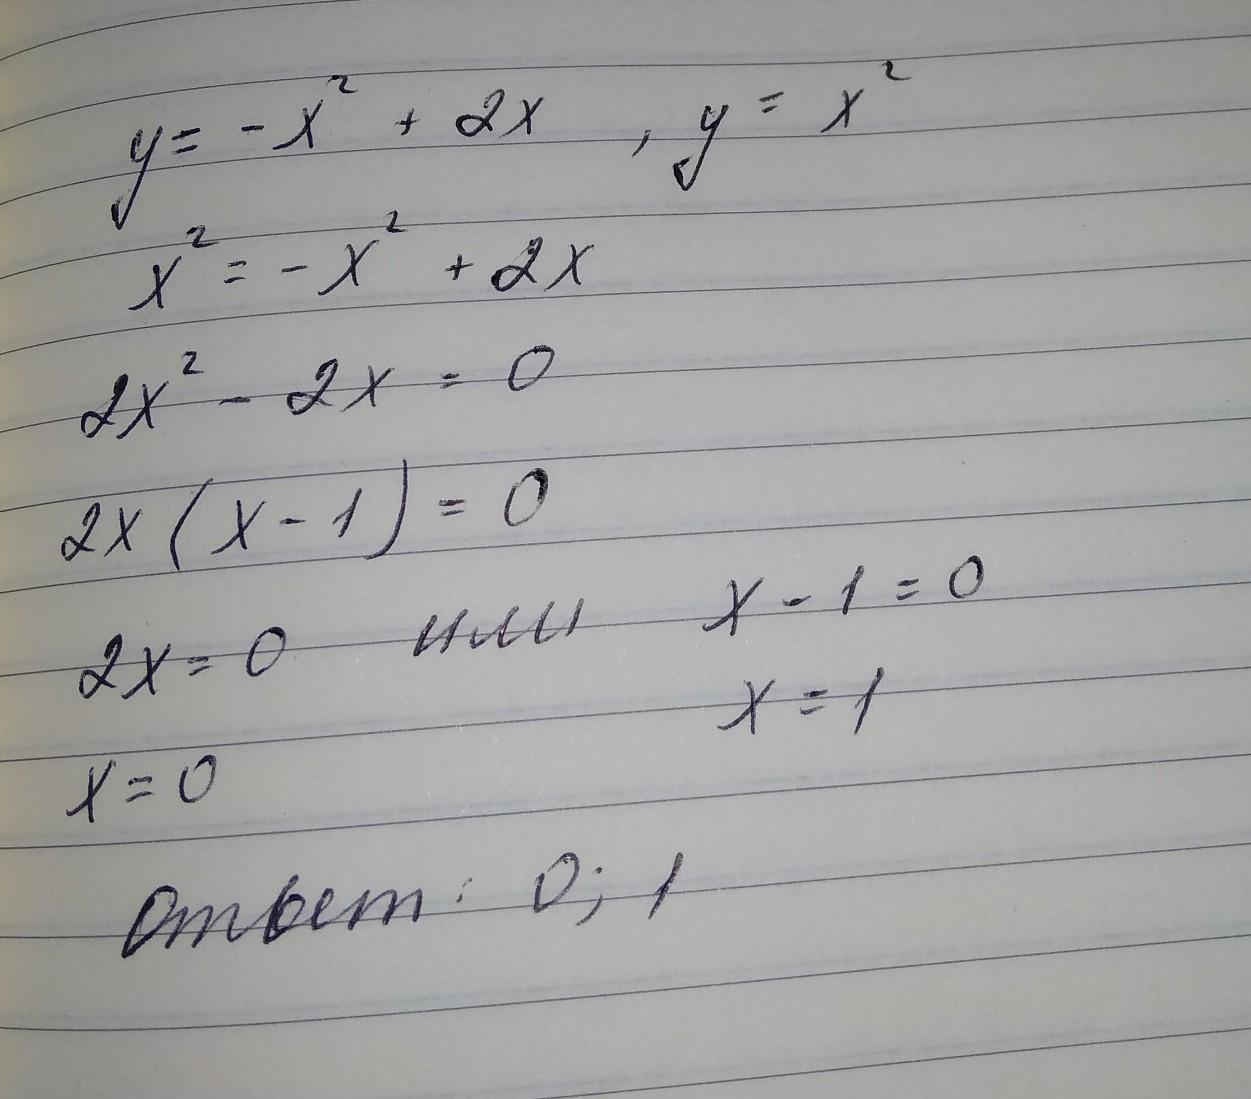 y = -x² + 2x , y = x²
x² = -x² + 2x
2x² - 2x = 0
2x (x - 1) = 0
2x = 0 или x - 1 = 0
x = 1
x = 0
Ответ: 0; 1